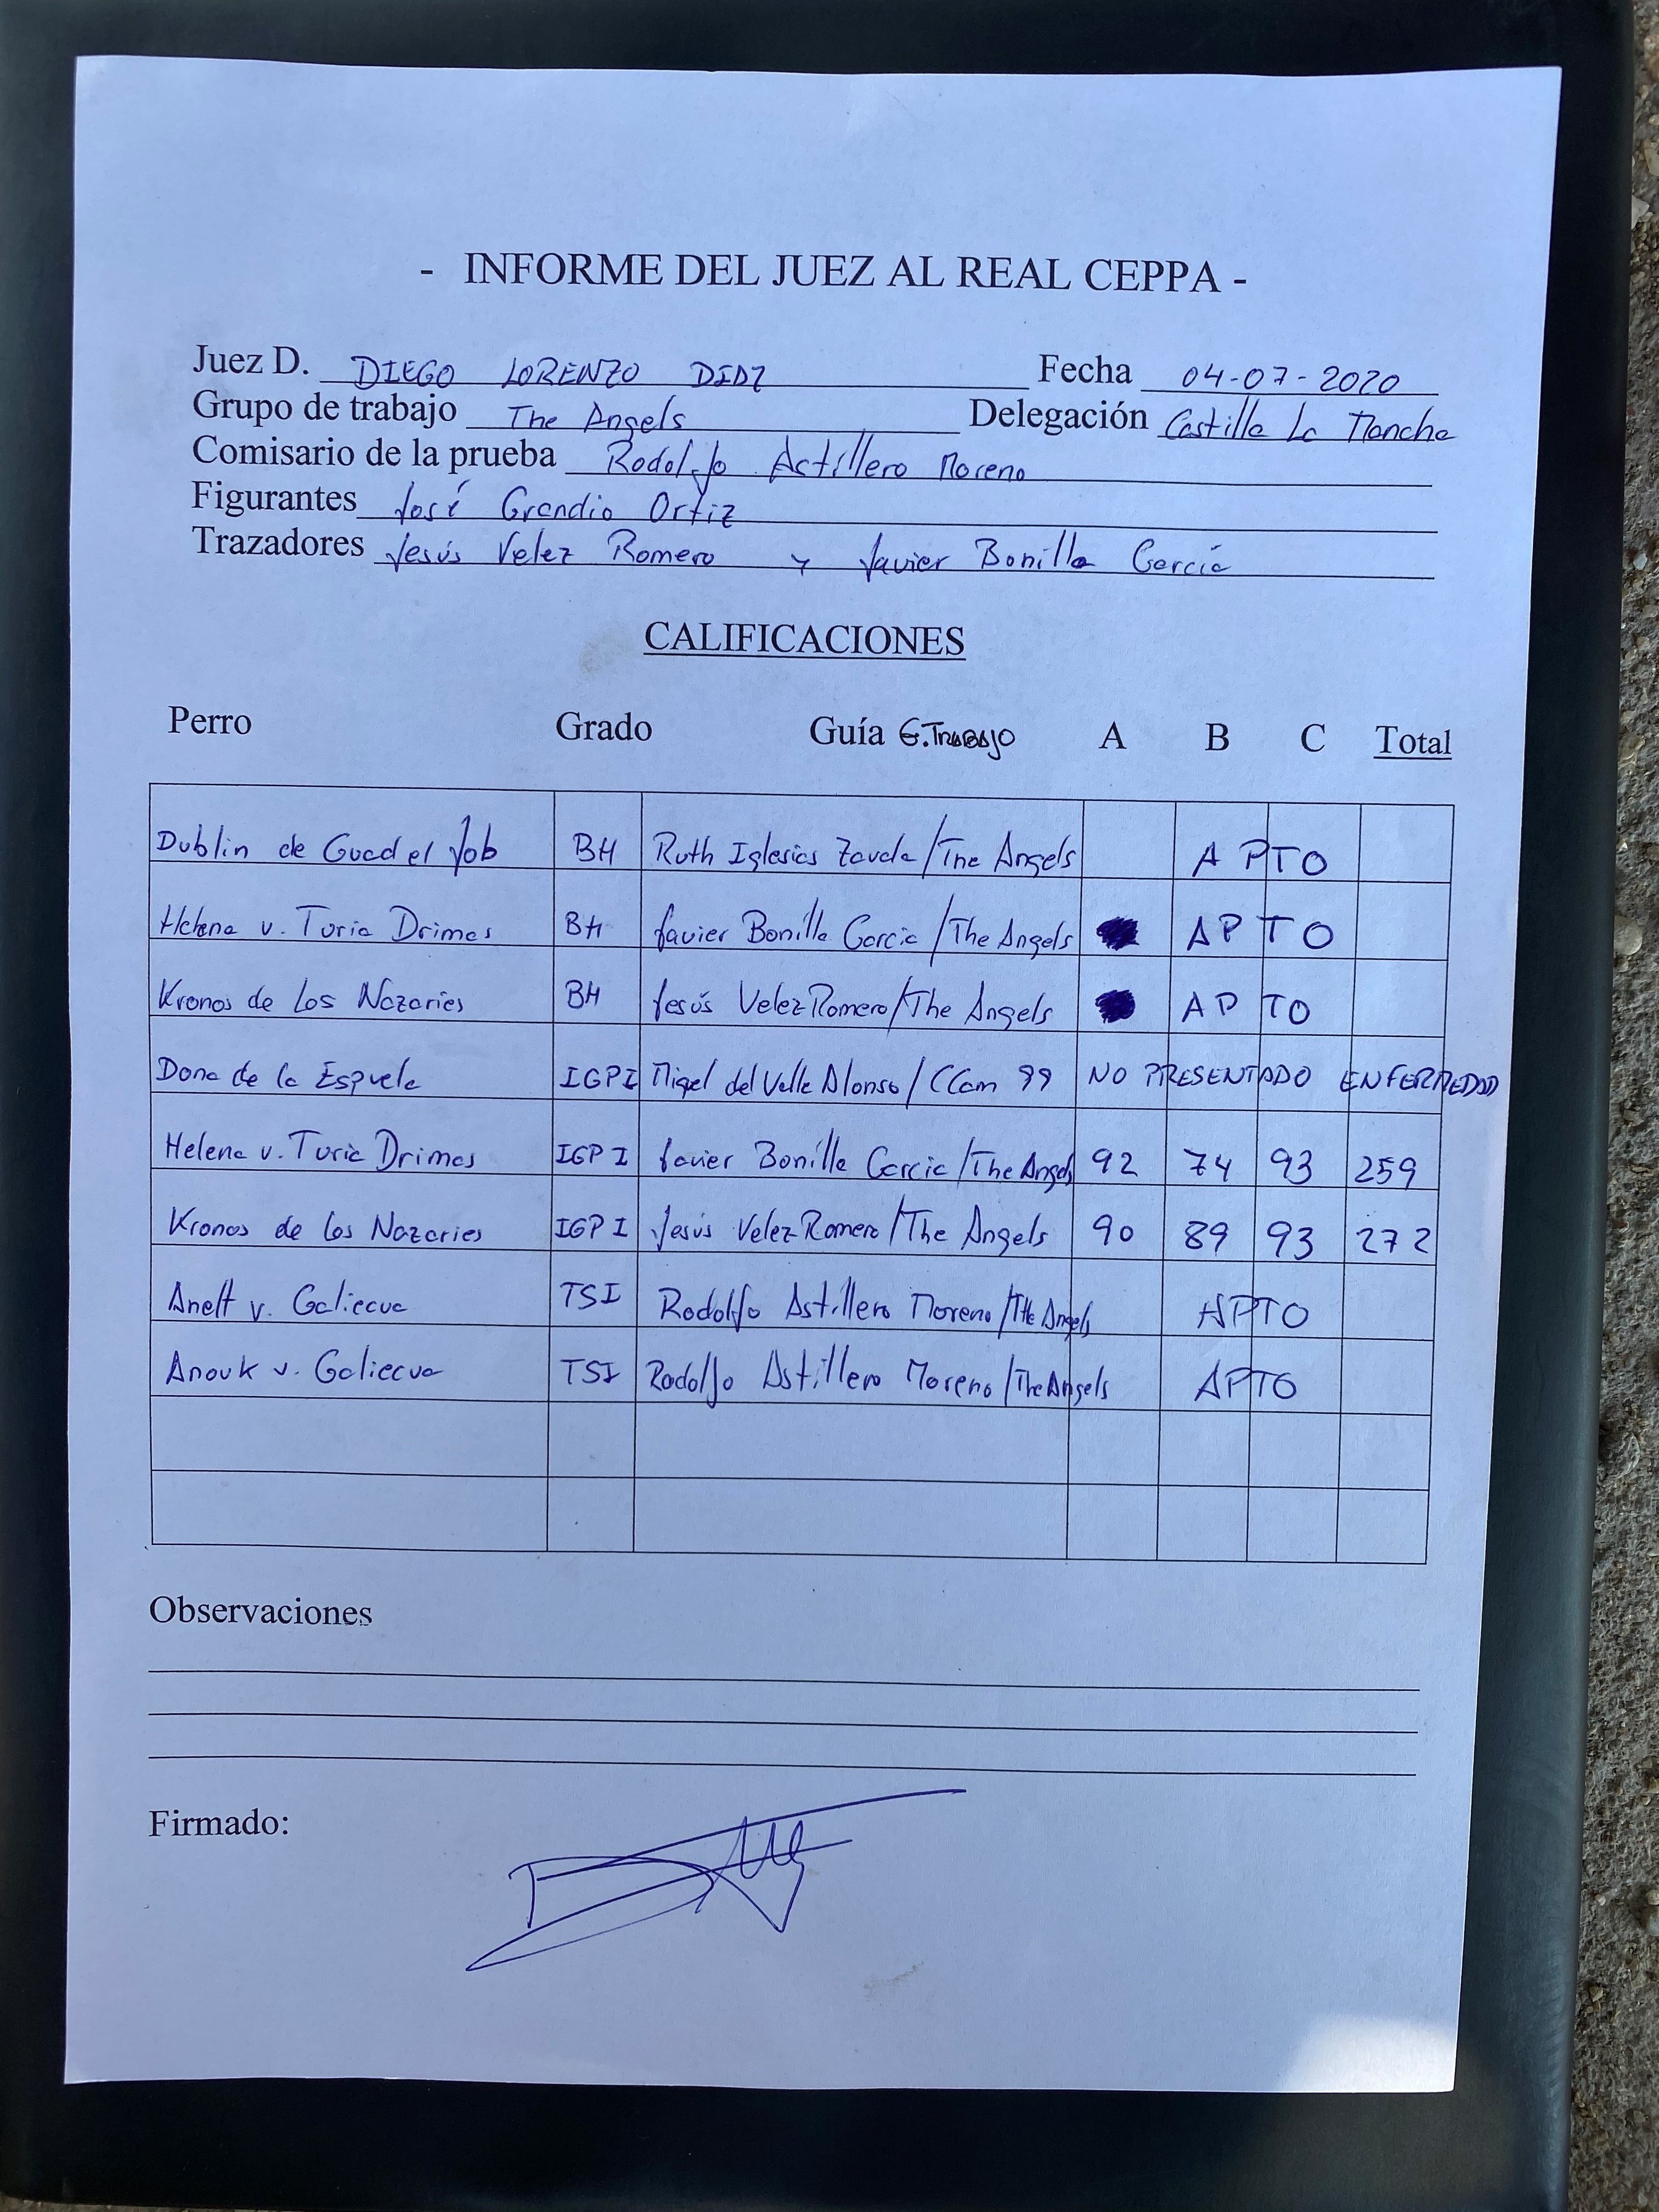 - INFORME DEL JUEZ AL REAL CEPPA -
Juez D. DIEGO LORENZO DIAZ Fecha 04-07-2020
Grupo de trabajo The Angels Delegación Castilla La Mancha
Comisario de la prueba Rodolfo Astillero Moreno
Figurantes José Grandio Ortiz
Trazadores Jesús Velez Romero y Javier Bonilla García
CALIFICACIONES
Perro Grado Guía G.TRABAJO A B C Total
Dublin de Guadel Job BH Ruth Iglesias Zavala/The Angels APTO
Helena v. Turia Drimas BH Javier Bonilla Garcia/The Angels APTO
Kronos de Los Nazaries BH Jesús Velez Romero/The Angels APTO
Dona de la Espuela IGP I Migel del Valle Alonso/CCam 99 NO PRESENTADO ENFERMEDAD
Helena v. Turia Drimas IGP I Javier Bonilla Garcia/The Angels 92 74 93 259
Kronos de los Nazaries IGP I Jesús Velez Romero/The Angels 90 89 93 272
Anett v. Galiecua TSI Rodolfo Astillero Moreno/The Angels APTO
Anouk v. Galiecua TSI Rodolfo Astillero Moreno/The Angels APTO
Observaciones
Firmado: